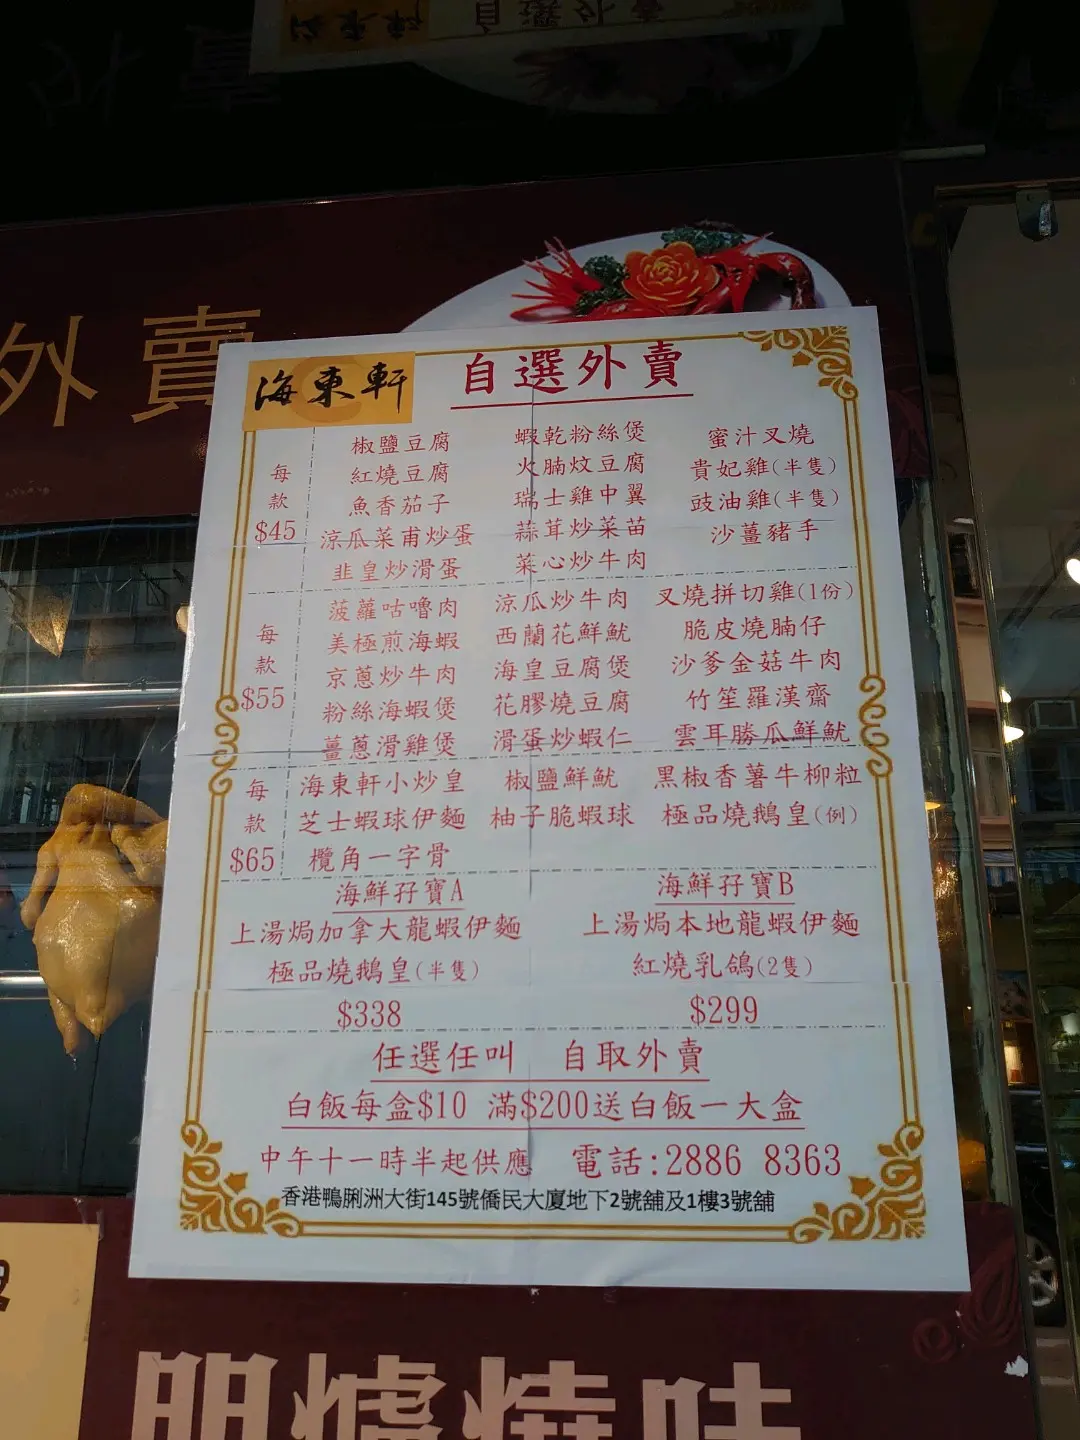 外賣
海東軒
自選外賣
每款$45
椒鹽豆腐 蝦乾粉絲煲 蜜汁叉燒
紅燒豆腐 火腩炆豆腐 貴妃雞(半隻)
魚香茄子 瑞士雞中翼 豉油雞(半隻)
涼瓜菜甫炒蛋 蒜茸炒菜苗 沙薑豬手
韭皇炒滑蛋 菜心炒牛肉
每款$55
菠蘿咕嚕肉 涼瓜炒牛肉 叉燒拼切雞(1份)
美極煎海蝦 西蘭花鮮魷 脆皮燒腩仔
京蔥炒牛肉 海皇豆腐煲 沙爹金菇牛肉
粉絲海蝦煲 花膠燒豆腐 竹笙羅漢齋
薑蔥滑雞煲 滑蛋炒蝦仁 雲耳勝瓜鮮魷
每款$65
海東軒小炒皇 椒鹽鮮魷 黑椒香薯牛柳粒
芝士蝦球伊麵 柚子脆蝦球 極品燒鵝皇(例)
欖角一字骨
海鮮孖寶A 海鮮孖寶B
上湯焗加拿大龍蝦伊麵 上湯焗本地龍蝦伊麵
極品燒鵝皇(半隻) 紅燒乳鴿(2隻)
$338 $299
任選任叫 自取外賣
白飯每盒$10 滿$200送白飯一大盒
中午十一時半起供應 電話:2886 8363
香港鴨脷洲大街145號僑民大廈地下2號舖及1樓3號舖
明爐燒味